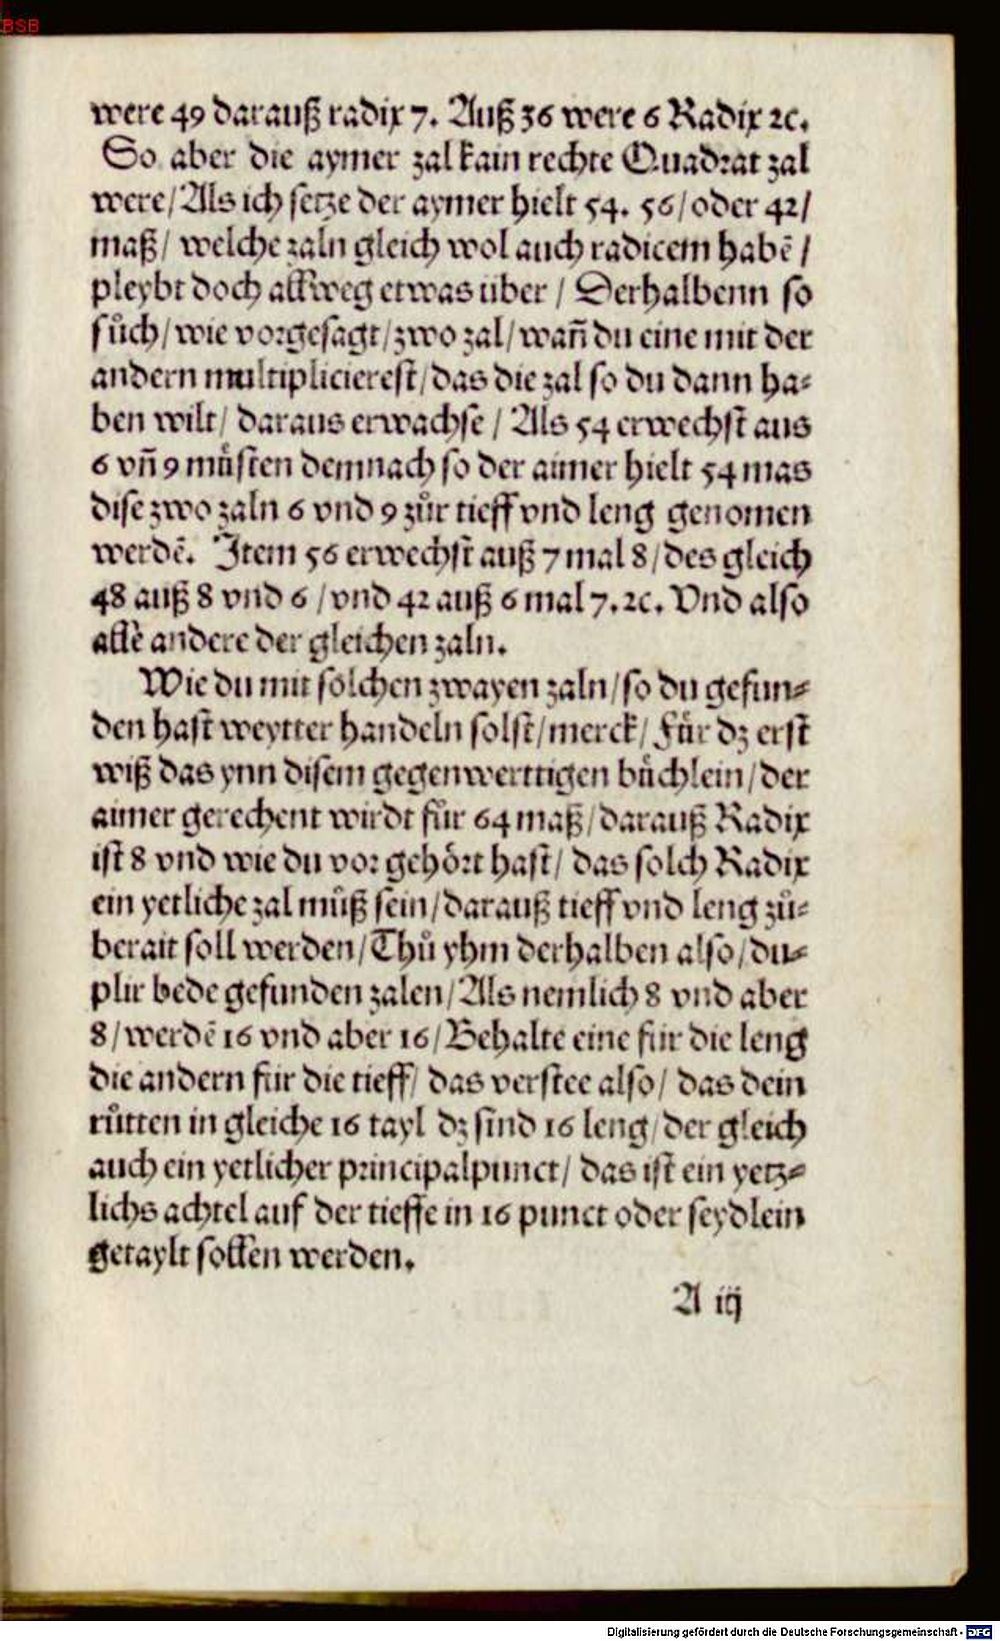 BSB
were 49 darauß radix 7. Auß 36 were 6 Radix ꝛc.
So aber die aymer zal kain rechte Quadrat zal
were/ Als ich setze der aymer hielt 54. 56/ oder 42/
maß/ welche zaln gleich wol auch radicem habē/
pleybt doch allweg etwas uber/ Derhalbenn so
sůch/ wie vorgesagt/ zwo zal/ wañ du eine mit der
andern multiplicierest/ das die zal so du dann ha⸗
ben wilt/ daraus erwachse/ Als 54 erwechst aus
6 vñ 9 müsten demnach so der aimer hielt 54 mas
dise zwo zaln 6 vnd 9 zůr tieff vnd leng genomen
werdē. Item 56 erwechst auß 7 mal 8/ des gleich
48 auß 8 vnd 6/ vnd 42 auß 6 mal 7. ꝛc. Vnd also
alle andere der gleichen zaln.
Wie du mit solchen zwayen zaln/ so du gefun⸗
den hast weytter handeln solst/ merck/ Für dz erst
wiß das ynn disem gegenwerttigen büchlein/ der
aimer gerechent wirdt für 64 maß/ darauß Radix
ist 8 vnd wie du vor gehört hast/ das solch Radix
ein yetliche zal můß sein/ darauß tieff vnd leng zů⸗
berait soll werden/ Thů yhm derhalben also/ du⸗
plir bede gefunden zalen/ Als nemlich 8 vnd aber
8/ werdē 16 vnd aber 16/ Behalte eine für die leng
die andern für die tieff/ das verstee also/ das dein
růtten in gleiche 16 tayl dz sind 16 leng/ der gleich
auch ein yetlicher principalpunct/ das ist ein yetz⸗
lichs achtel auf der tieffe in 16 punct oder seydlein
getaylt sollen werden.
A iij
Digitalisierung gefördert durch die Deutsche Forschungsgemeinschaft - DFG